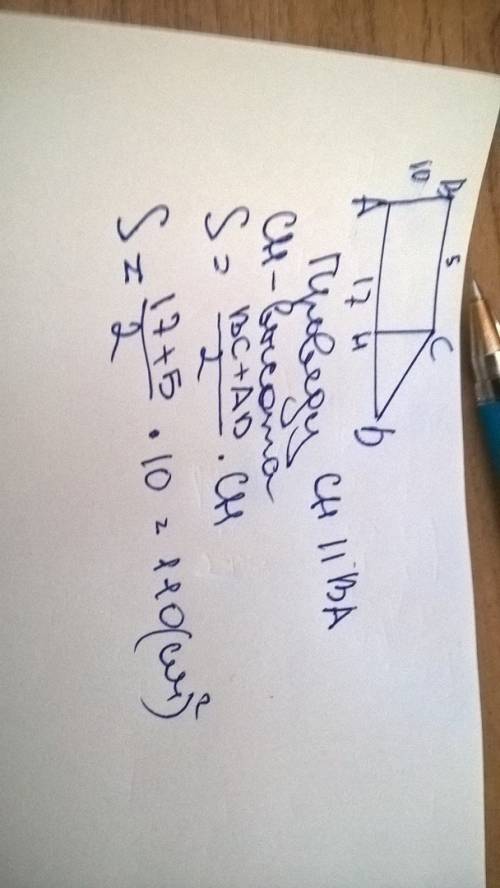 B 5 C
10
A 17 H D
Проведу CH || BA
CH - высота
S = BC + AD / 2 · CH
S = 17 + 5 / 2 · 10 = 110 (см²)